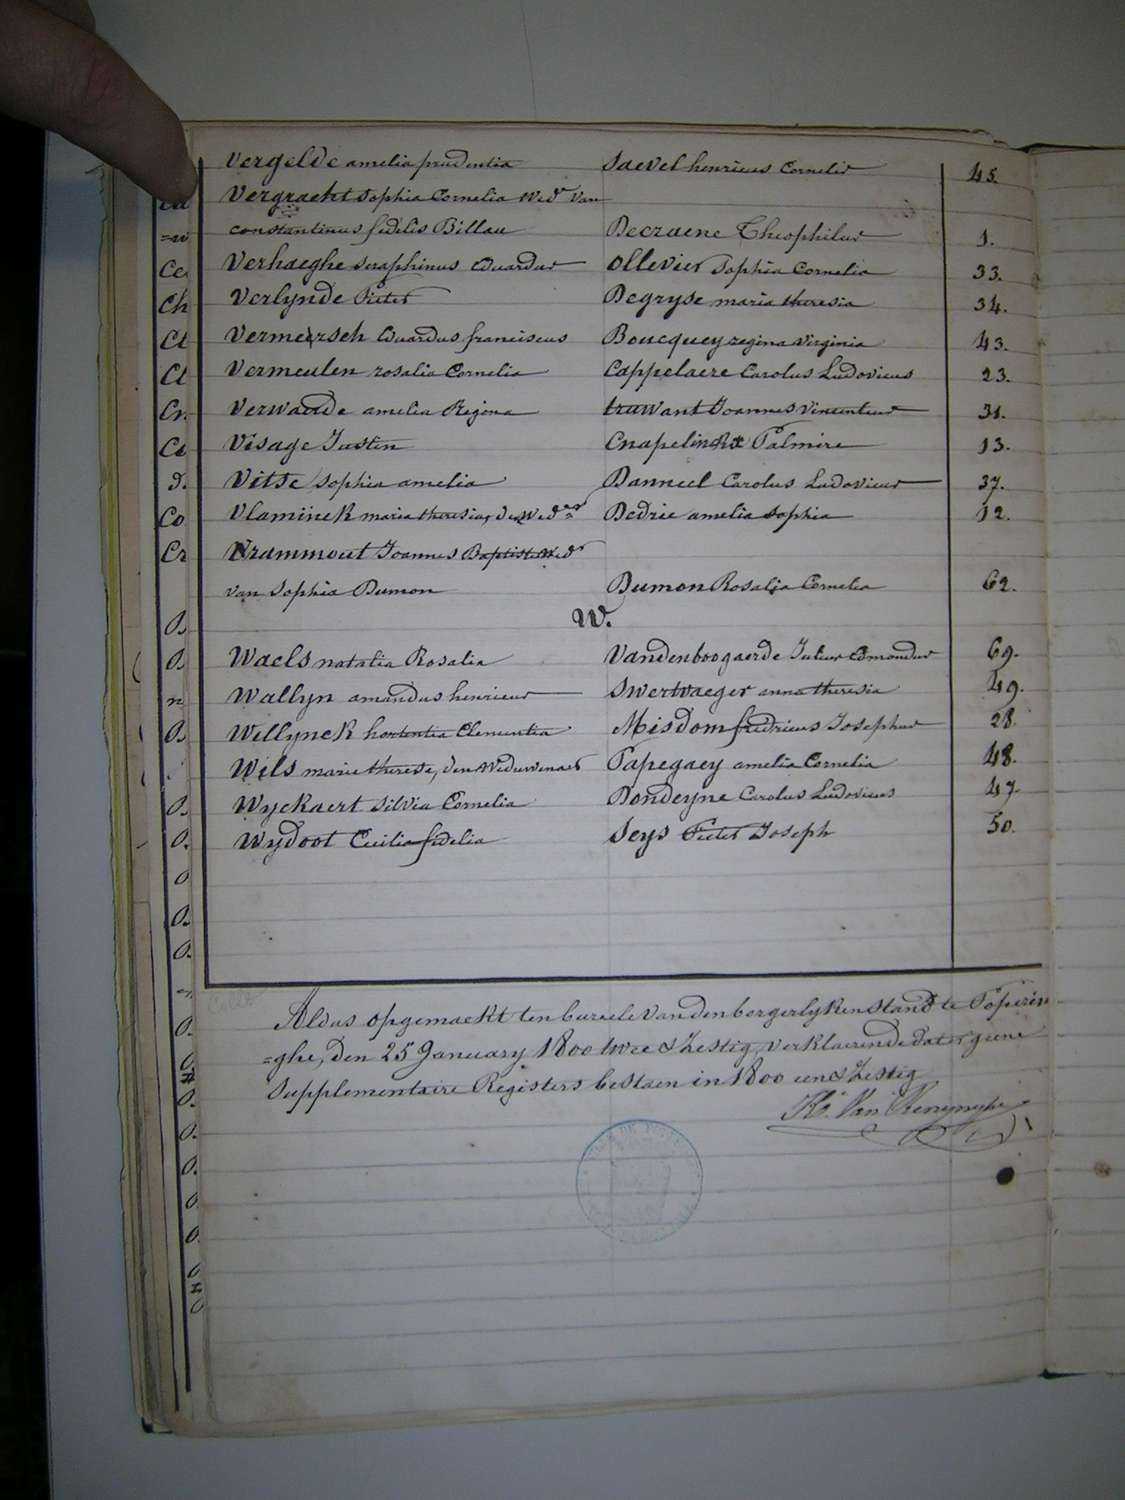 Vergelde amelia prudentia Saevel henricus Cornelis 45.
Vergracht Sophia Cornelia Wed.e Van
constantinus fidelis Billau Decraene Theophilus 1.
Verhaeghe seraphinus Eduardus Ollevier Sophia Cornelia 33.
Verlynde Pieter Degryse maria theresia 34.
Vermeersch Eduardus franciscus Boucquey regina Virginia 43.
Vermeulen rosalia Cornelia Cappelaere Carolus Ludovicus 23.
Verwaede amelia Regina truwant Joannes Vincentius 31.
Visage Justin Cnapelinckx Palmire 13.
Vitse Sophia amelia Danneel Carolus Ludovicus 37.
Vlaminck maria theresia, de Wed.er Dedrie amelia Sophia 12.
Vrammout Joannes Baptiste Wed.r
van Sophia Dumon Dumon Rosalia Cornelia 62.
W.
Waels natalia Rosalia Vandenboogaerde Julius Edmondus 69.
Wallyn amandus henricus Swertvaeger anna theresia 49.
Willynck hortentia Clementia Misdom fredricus Josephus 28.
Wils marie therese, den Weduwenaer Papegaey amelia Cornelia 48.
Wyckaert Silvia Cornelia Dondeyne Carolus Ludovicus 47.
Wydoot Cecilia fidelia Seys Pieter Joseph 50.
Aldus opgemaekt ten bureele van den borgerlyken stand te Poperin
=ghe, den 25 January 1800 twee & Zestig, verklaerende dat er geene
Supplementaire Registers bestaen in 1800 een & Zestig